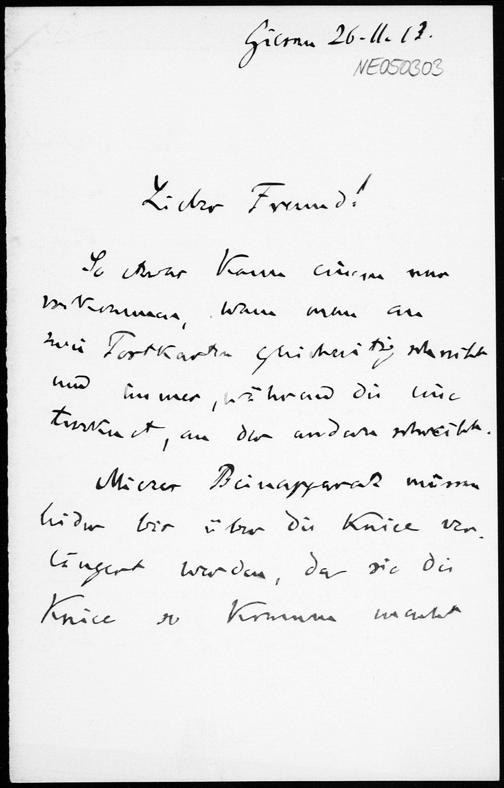 26-11-13.
NE050303
Lieber Freund!
So etwas kann einem nur
vorkommen, wenn man an
zwei Postkarten gleichzeitig schreibt
und immer, während die eine
trocknet, an der andern schreibt.
Miezes Beinapparate müssen
leider bis über die Kniee ver-
längert werden, da sie die
Kniee so krumm macht